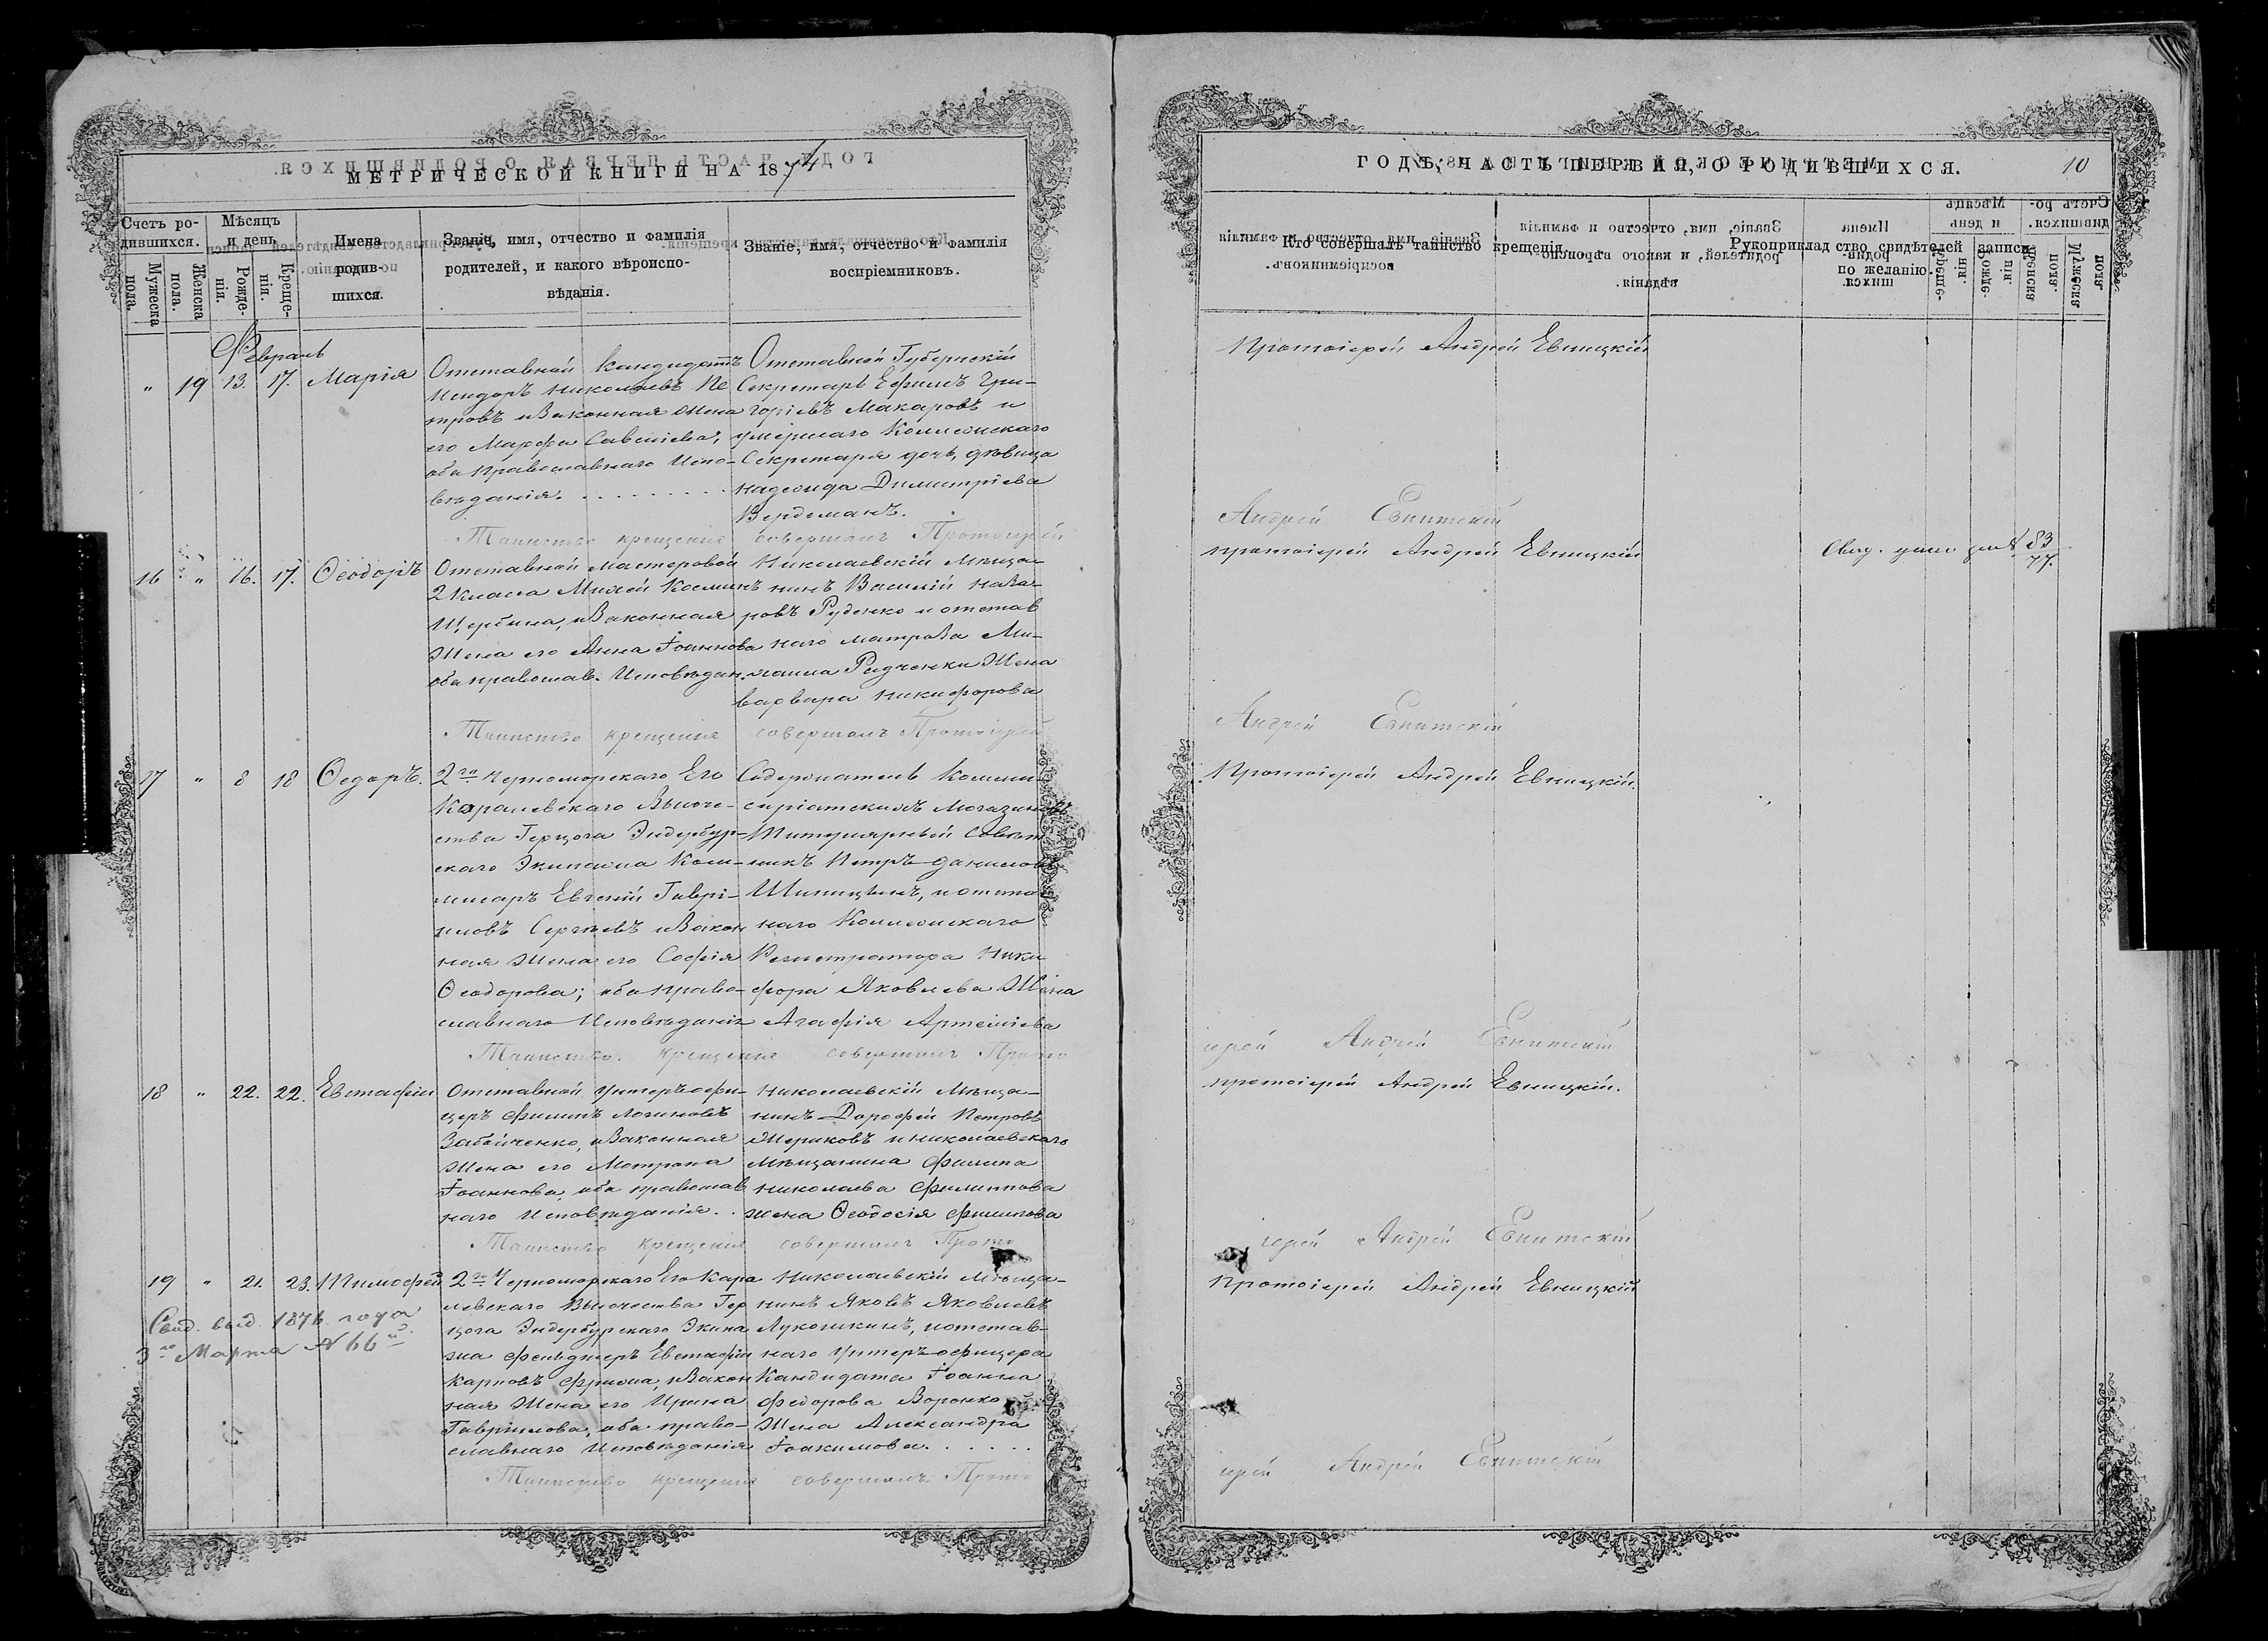 МЕТРИЧЕСКОЙ КНИГИ НА 1874
Счетъ ро-
дившихся.
Мужеска пола.
Женска пола.
Мѣсяцъ
и день
Рожде-
нія.
Креще-
нія.
Имена
родив-
шихся.
Званіе, имя, отчество и фамилія
родителей, и какого вѣроиспо-
вѣданія.
Званіе, имя, отчество и фамилія
воспріемниковъ.
Февраль
" 19 13. 17. Марія
Отставной Кандидатъ
Исидоръ Николаевъ Пе
тровъ и Законная Жена
его Марфа Савеліева,
оба Православнаго Испо-
вѣданія.
Отставной Губернскій
Секретарь Ефимъ Гри-
горіевъ Макаровъ и
умершаго Коллежскаго
Секретаря дочь, дѣвица
Надежда Димитріева
Вердеманъ.
Таинство крещенія совершалъ Протоіерей
16 " 16. 17. Ѳеодоръ
Отставной мастеровой
2 Класса
Щербина, и Законная
Жена его Анна Іоаннова
оба православ. Исповѣдан.
Николаевскій Мѣща-
нинъ Василій Наза-
ровъ Руденко и отстав
наго матроза Ми-
хаила Редченки Жена
Варвара Никифорова
Таинство крещенія совершалъ Протоіерей
17 " 8 18 Ѳедоръ.
2го Черноморскаго Его
Каралевскаго Высоче-
ства Герцога Эндербур-
скаго Экипажа Ком-
мисаръ Евгеній Гаврі-
иловъ Сергѣевъ и Закон
ная Жена его Софія
Ѳеодорова; оба Право-
славнаго Исповѣданія
Содержатель Комми-
сріатскихъ Магазиновъ
Титулярный Совѣт
никъ Петръ Даниловъ
Шипицинъ, и отстав
наго Коллежскаго
Регистратора Ники
фора Яковлева Жена
Агафія Артеміева
Таинство крещенія совершалъ Прото
18 " 22. 22. Евстафій
Отставной Унтеръ-офи-
церъ Филипъ Логиновъ
Забойченко, и Законная
Жена его Матрона
Іоаннова, оба православ
наго Исповѣданія.
Николаевскій Мѣща-
нинъ Дорофей Петровъ
Мериковъ и Николаевскаго
Мѣщанина Филипа
Николаева Филиппова
жена Ѳеодосія Филипова
Таинство крещенія совершалъ Прото
19 " 21. 23. Тимофей
Свид. выд. 1876 года
3го Марта № 66
2го Черноморскаго Его Кара
левскаго Высочества Гер
цога Эндербурскаго Экипа
жа фельдшеръ Евстафій
Карповъ и Закон
ная Жена его Ирина
Гавріилова, оба право-
славнаго Исповѣданія
Николаевскій Мѣща-
нинъ Яковъ Яковлевъ
Лукошкинъ, и отстав-
наго Унтеръ-офицера
Кандидата Іоанна
Федорова Воронко
Жена Александра
Іоакимова.
Таинство крещенія совершалъ Прото
ГОДЪ, ЧАСТЬ ПЕРВАЯ, О РОДИВШИХСЯ.
10
Кто совершалъ таинство крещенія.
Рукоприкладство свидѣтелей записи
по желанію.
Протоіерей Андрей Евницкій
Андрей Евнитскій
Протоіерей Андрей Евницкій
№ 83
77.
Андрей Евнитскій
Протоіерей Андрей Евницкій.
іерей Андрей Евнитскій
Протоіерей Андрей Евницкій.
іерей Андрей Евнитскій
Протоіерей Андрей Евницкій
іерей Андрей Евнитскій